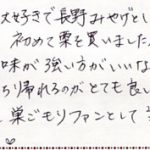 大好きで長野みやげとし
初めて栗を買いました
味が強い方がいいな
ち帰れるのがとても良い
巣ごもりファンとして